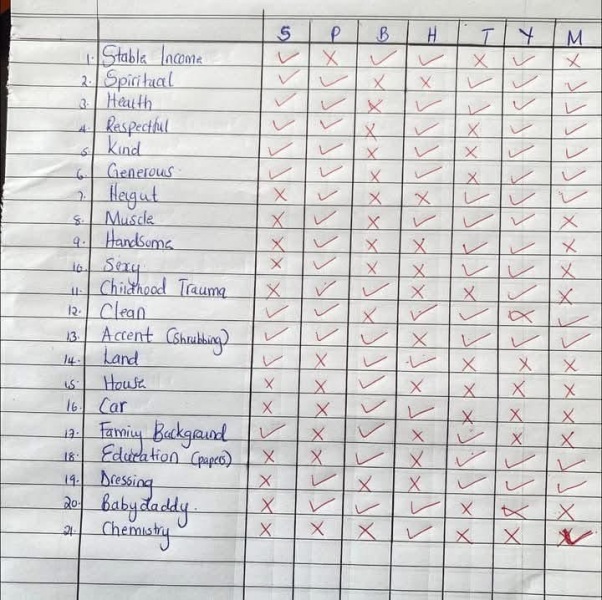 S P B H T Y M
1. Stable Income ✓ ✗ ✓ ✓ ✗ ✓ ✗
2. Spiritual ✓ ✓ ✗ ✗ ✓ ✓ ✓
3. Health ✓ ✓ ✗ ✓ ✓ ✓ ✓
4. Respectful ✓ ✓ ✗ ✓ ✗ ✓ ✓
5. Kind ✓ ✓ ✗ ✓ ✗ ✓ ✓
6. Generous ✓ ✓ ✗ ✓ ✗ ✓ ✓
7. Heigut ✗ ✓ ✗ ✗ ✓ ✓ ✓
8. Muscle ✗ ✓ ✗ ✓ ✓ ✓ ✗
9. Handsome ✗ ✓ ✗ ✗ ✓ ✓ ✗
10. Sexy ✗ ✓ ✗ ✗ ✓ ✓ ✗
11. Childhood Trauma ✗ ✓ ✓ ✗ ✗ ✓ ✗
12. Clean ✓ ✓ ✗ ✓ ✓ ✗ ✓
13. Accent (Shrubbing) ✓ ✓ ✓ ✗ ✓ ✓ ✓
14. Land ✓ ✗ ✓ ✓ ✗ ✗ ✗
15. House ✗ ✗ ✓ ✗ ✗ ✗ ✗
16. Car ✗ ✗ ✓ ✓ ✗ ✗ ✗
17. Family Background ✓ ✗ ✓ ✗ ✓ ✗ ✗
18. Education (papers) ✗ ✗ ✓ ✗ ✓ ✓ ✓
19. Dressing ✗ ✓ ✗ ✗ ✓ ✓ ✓
20. Babydaddy. ✗ ✓ ✓ ✓ ✗ ✗ ✗
21. Chemistry ✗ ✗ ✗ ✓ ✗ ✗ ✓